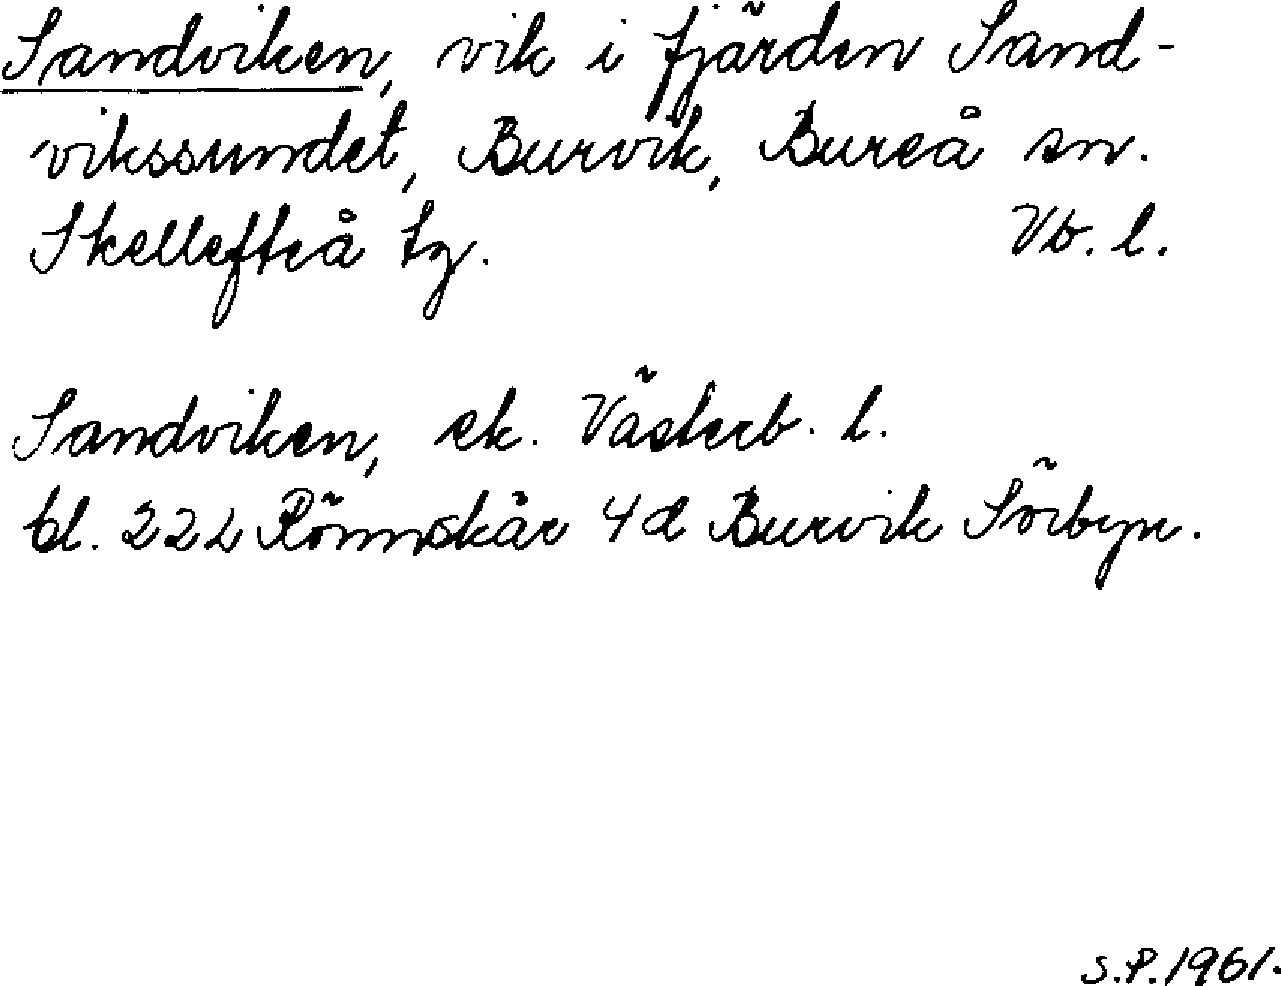 Sandviken, vik i fjärden Sand-
vikssundet, Burvik, Bureå sn.
Skellefteå tg. Vb. l.
Sandviken, ek. Västerb. l.
bl. 222 Rönnskär 4d Burvik Sörbyn.
S.P. 1961.